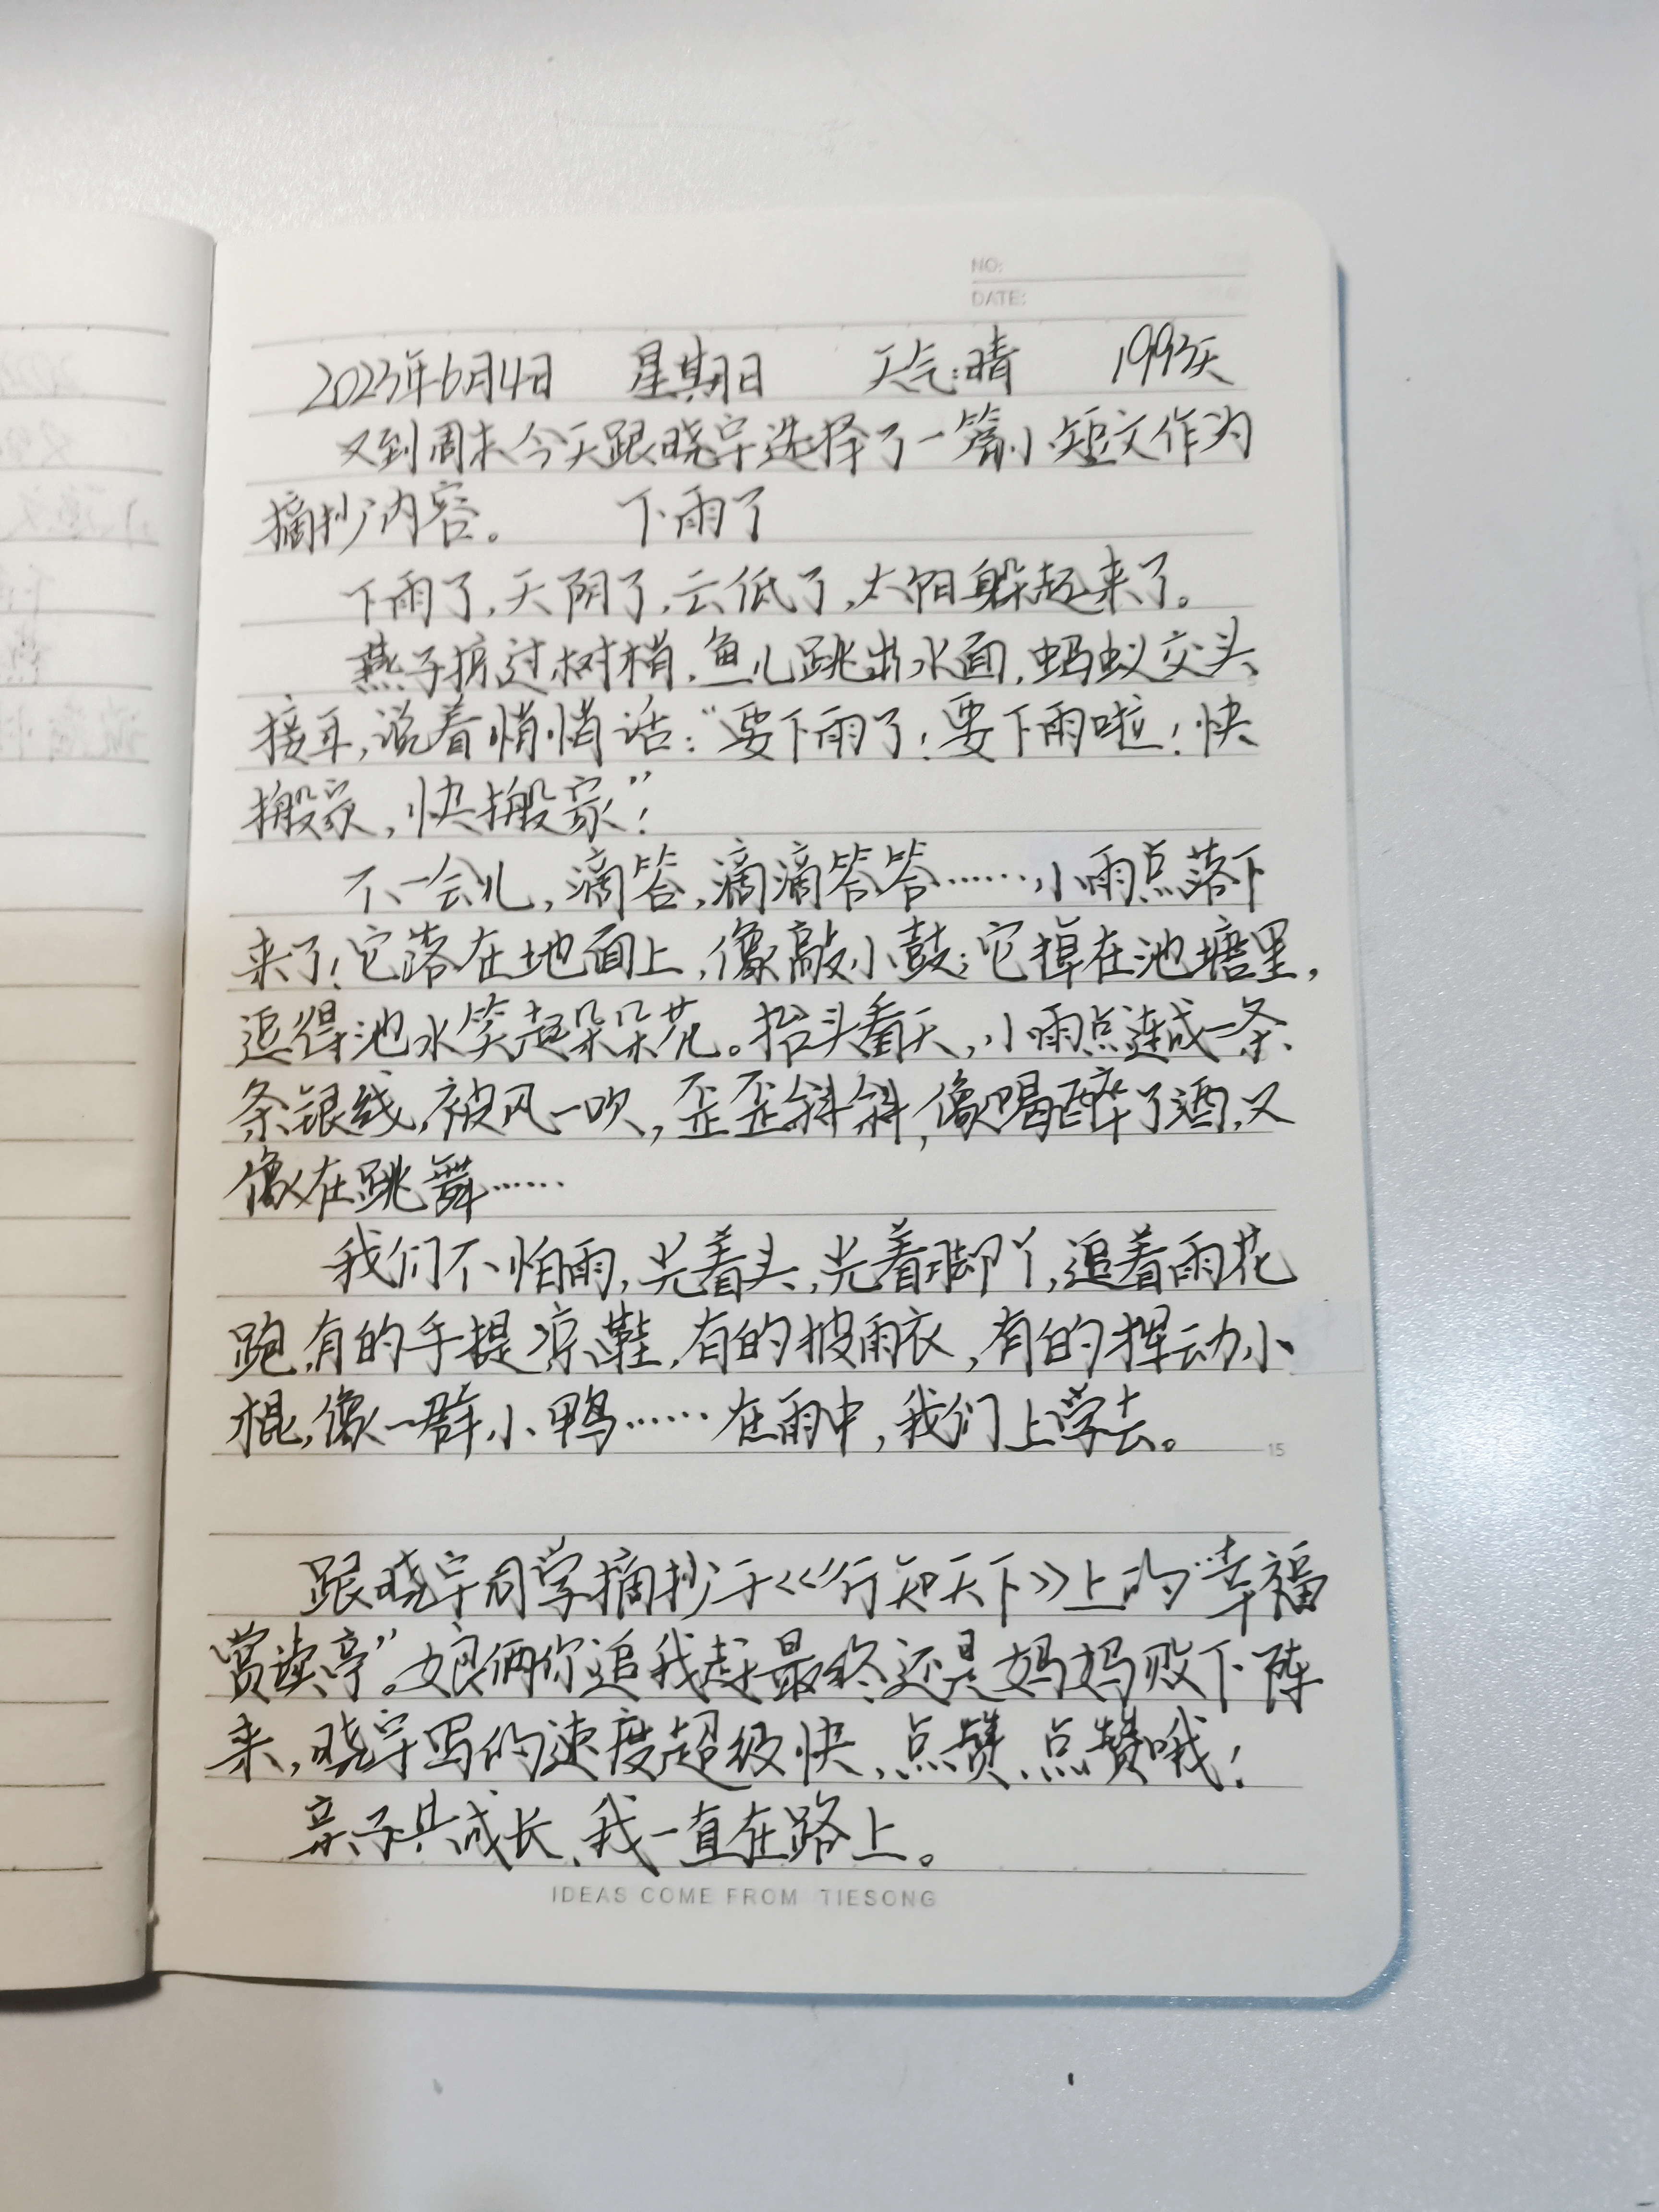 NO:
DATE:
2023年6月4日 星期日 天气:晴 1993天
又到周末今天跟晓宇选择了一篇小短文作为
摘抄内容。 下雨了
下雨了,天阴了,云低了,太阳躲起来了。
燕子掠过树梢,鱼儿跳出水面,蚂蚁交头
接耳,说着悄悄话:“要下雨了!要下雨啦!快
搬家,快搬家”!
不一会儿,滴答,滴滴答答……,小雨点落下
来了!它落在地面上,像敲小鼓;它掉在池塘里,
逗得池水笑起朵朵花。抬头看天,小雨点连成一条
条银线,被风一吹,歪歪斜斜,像喝醉了酒,又
像在跳舞……
我们不怕雨,光着头,光着脚丫,追着雨花
跑,有的手提凉鞋,有的披雨衣,有的挥动小
棍,像一群小鸭……在雨中,我们上学去。
15
跟晓宇同学摘抄于《行知天下》上的“幸福
赏读亭”。娘俩你追我赶最终还是妈妈败下阵
来,晓宇写的速度超级快、点赞、点赞哦!
亲子共成长、我一直在路上。
IDEAS COME FROM TIESONG